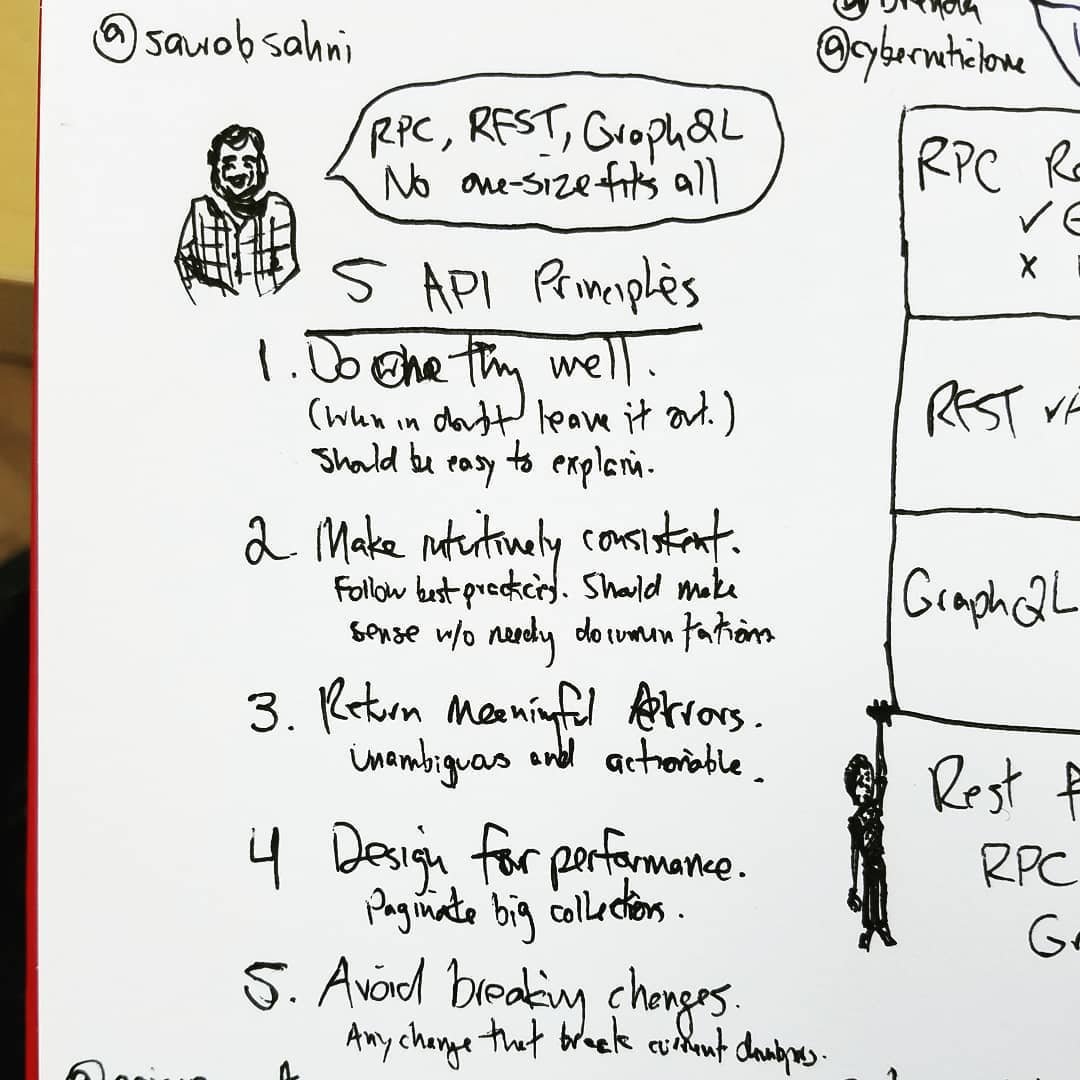 @sawobsahni
@cyberneticlove
RPC, REST, GraphQL
No one-size-fits all
5 API Principles
1. Do one thing well.
(When in doubt leave it out.)
Should be easy to explain.
2. Make intuitively consistent.
Follow best practices. Should make
sense w/o needing documentations
3. Return Meaningful Errors.
Unambiguous and actionable.
4 Design for performance.
Paginate big collections.
5. Avoid breaking changes.
Any change that break current
RPC
✓
x
REST ✓
GraphQL
Rest
RPC